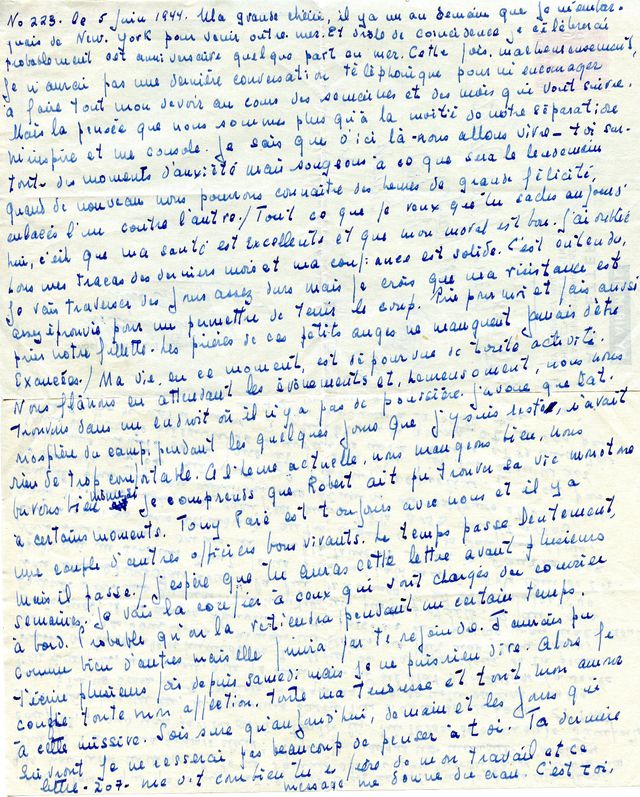 No 223. Ce 5 Juin 1944. Ma grande chérie, il y a un an demain que je m'embar-
quais de New-York pour venir outre-mer. Et drôle de coincidence je célèbrerai
probablement cet anniversaire quelque part en mer. Cette fois, malheureusement,
je n'aurai pas une dernière conversation téléphonique pour m'encourager
à faire tout mon devoir au cours des semaines et des mois qui vont suivre.
Mais la pensée que nous sommes plus qu'à la moitié de notre séparation
m'inspire et me console. Je sais que d'ici là - nous allons vivre - toi sur-
tout - des moments d'anxiété mais songeons à ce que sera le lendemain
quand de nouveau nous pourrons connaître des heures de grande félicité,
enlacés l'un contre l'autre./ Tout ce que je veux que tu saches aujourd'
hui, c'est que ma santé est excellente et que mon moral est bon. J'ai oublié
tous mes tracas des derniers mois et ma confiance est solide. C'est entendu,
je vais traverser des jours assez durs mais je crois que ma résistance est
assez éprouvée pour me permettre de tenir le coup. Prie pour moi et fais aussi
prier notre fillette. Les prières de ces petits anges ne manquent jamais d'être
exaucées./ Ma vie, en ce moment, est dépourvue de toute activité.
Nous flânons en attendant les évènements et, heureusement, nous nous
trouvons dans un endroit où il n'y a pas de poussière. J'avoue que l'at-
mosphère du camp, pendant les quelques jours que j'y suis resté, n'avait
rien de trop confortable. A l'heure actuelle, nous mangeons bien, nous
buvons bien même et je comprends que Robert ait pu trouver sa vie monotone
à certains moments. Tony Paré est toujours avec nous et il y a
une couple d'autres officiers bons vivants. Le temps passe lentement,
mais il passe./ J'espère que tu auras cette lettre avant plusieurs
semaines. Je vais la confier à ceux qui sont chargés du courrier
à bord. Probable qu'on la retiendra pendant un certain temps,
comme bien d'autres mais elle finira par te rejoindre. J'aurais pu
t'écrire plusieurs fois depuis samedi mais je ne puis rien dire. Alors je
confie toute mon affection, toute ma tendresse et tout mon amour
à cette missive. Sois sure qu'aujourd'hui, demain et les jours qui
suivront je ne cesserai pas beaucoup de penser à toi. Ta dernière
lettre - 207 - me dit combien tu es fière de mon travail et ce
message me donne du cran. C'est toi,